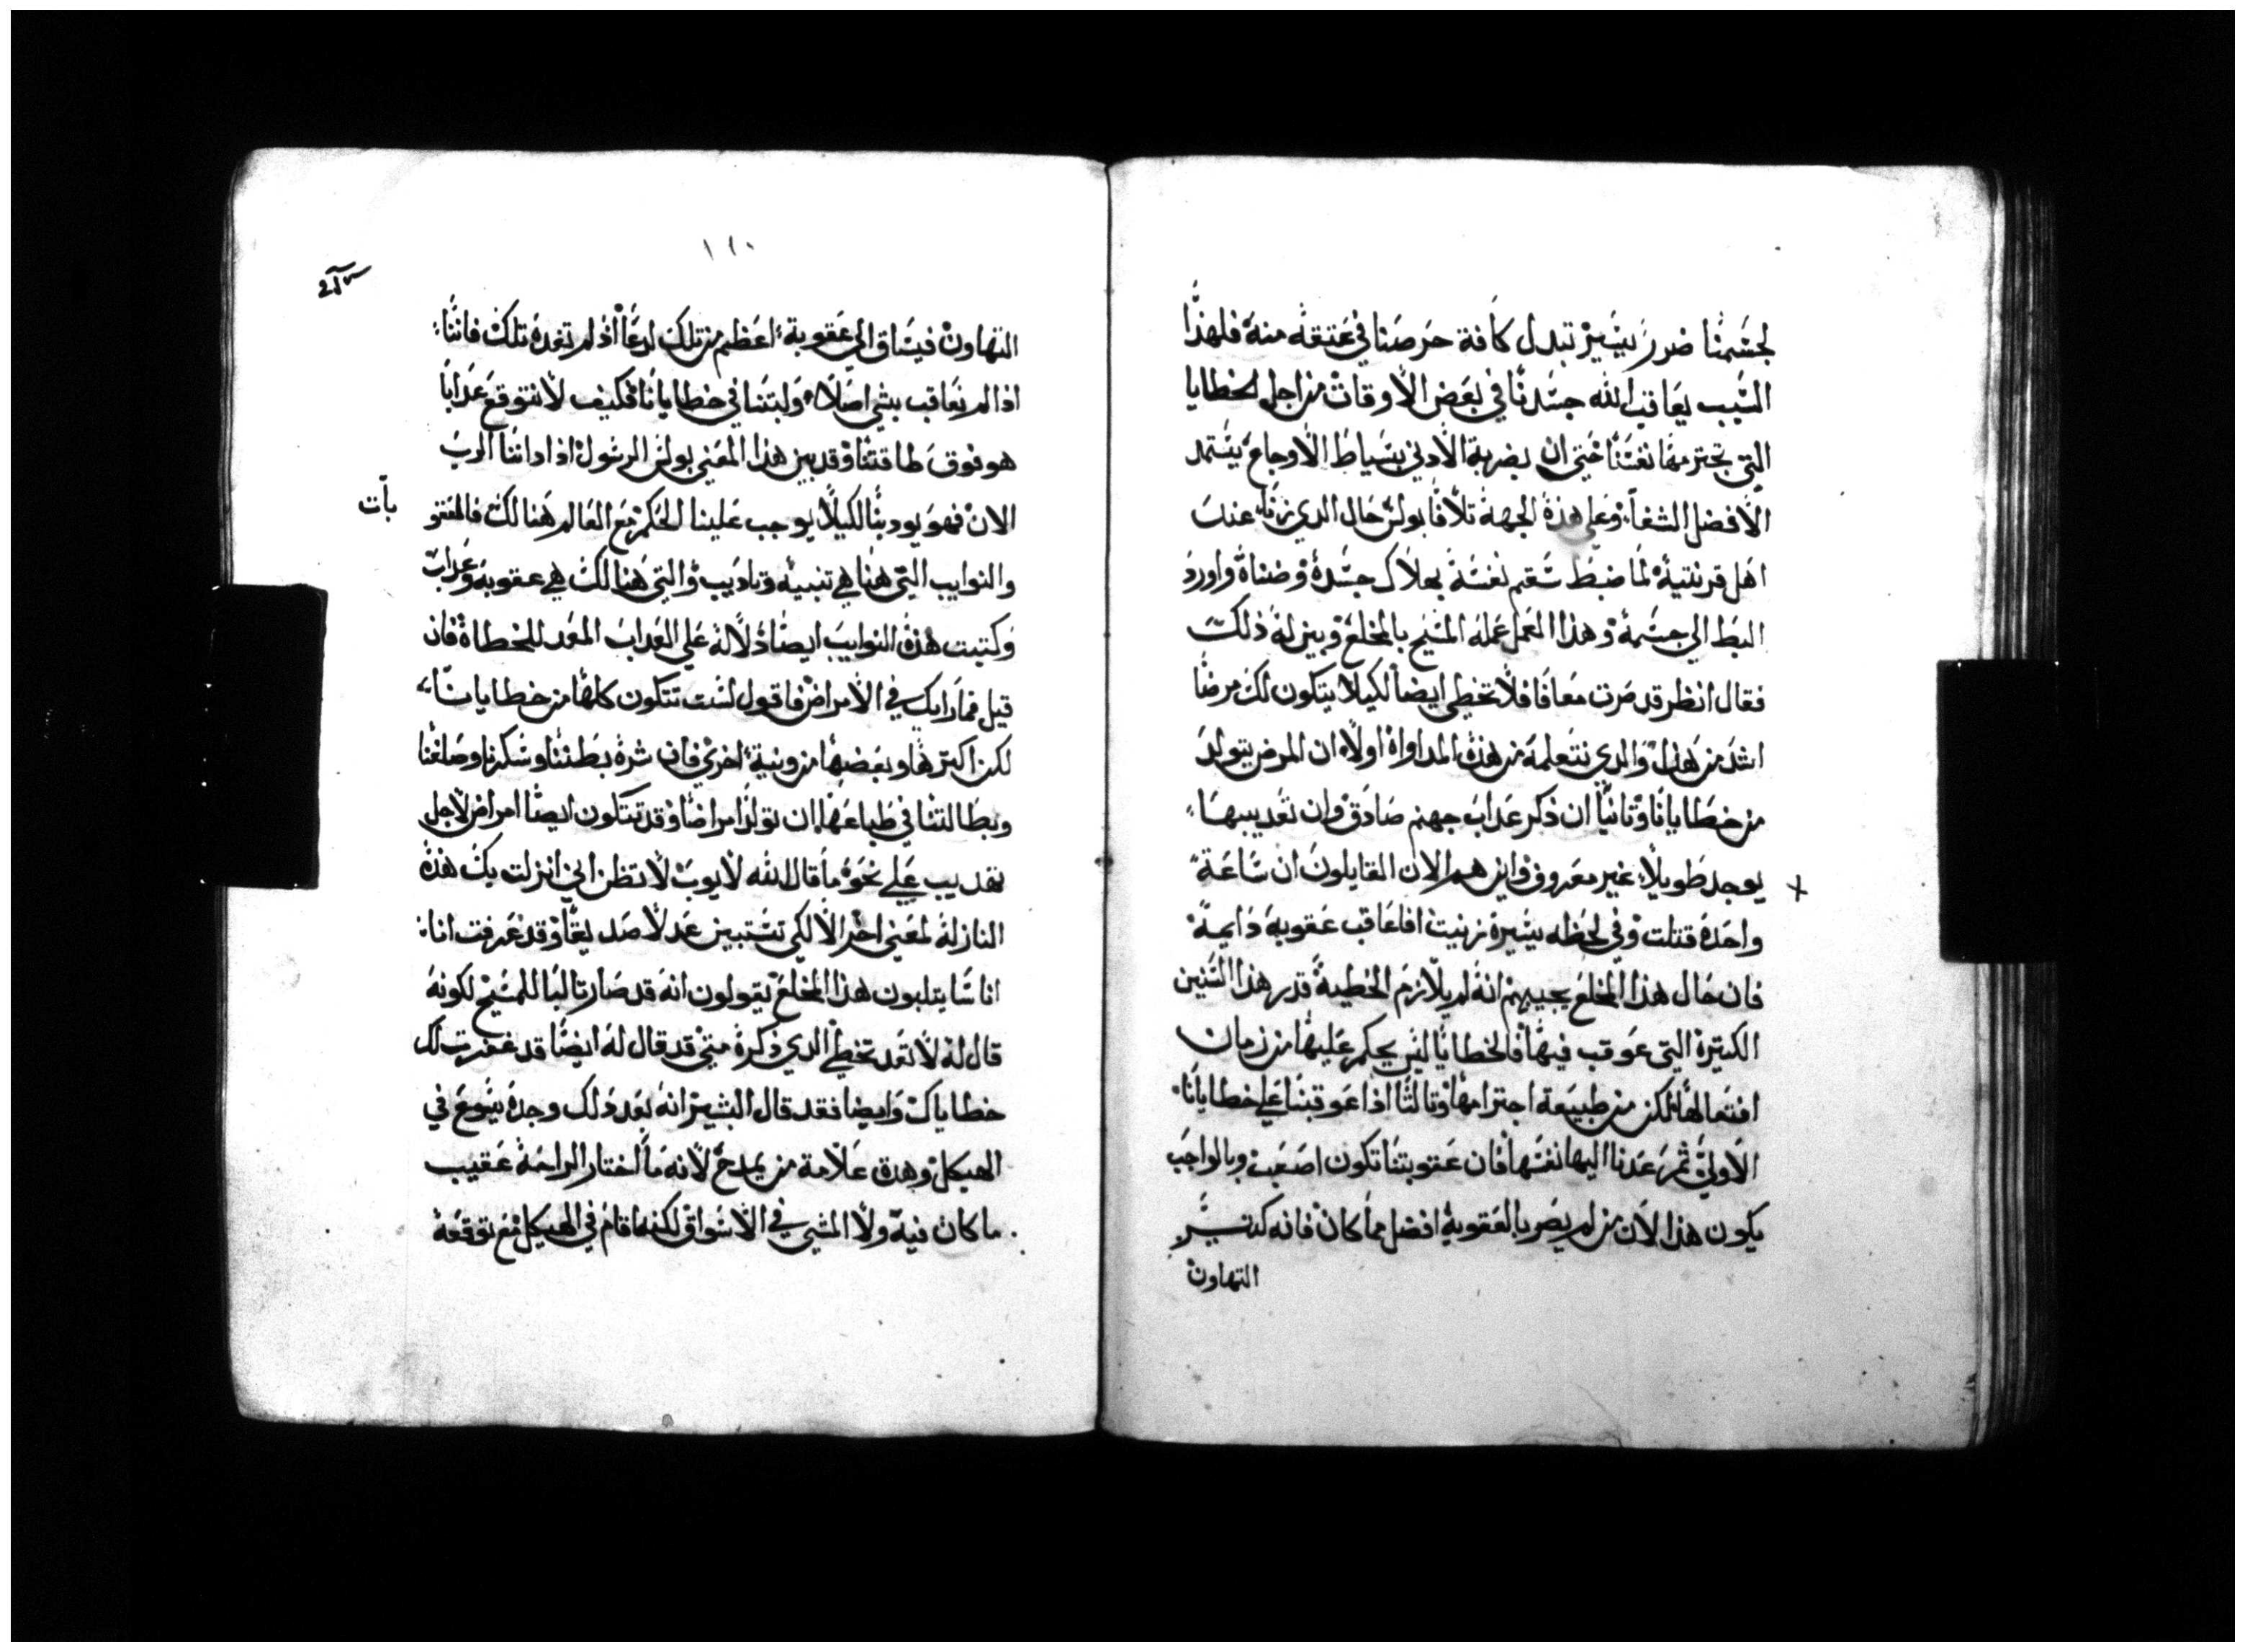 لجسمنا ضرر يسير تبدل كافة حرصنا في عتقه منه فلهذا
السبب يعاقب الله جسدنا في بعض الاوقات من اجل الخطايا
التي تجترمها نفسنا حتى ان بضربة الادني بسياط الاوجاع يستمد
الافضل الشفاء وعلى هذه الجهة تلافا بولس حال الدي زنا عند
اهل قرنتية لما ضبط سقم نفسه بهلاك جسده وضناه واورد
البط الي جسمه وهذا العمل عمله المسيح بالمخلع وبين له ذلك
فقال انظر قد صرت معافا فلا تخطي ايضا لكيلا يتكون لك مرضا
اشد من هذا والدي نتعلمه من هذه المداواة اولا ان المرض يتولد
من خطايانا وتانيا ان ذكر عداب جهنم صادق وان تعديبها
يوجد طويلا غير معروف واين هم الان القايلون ان ساعة
واحدة قتلت وفي لحظه يسيرة زنيت افاعاقب عقوبة دايمة
فان حال هذا المخلع يجيبهم انه لم يلازم الخطية قدر هذا السنين
الكتيرة التي عوقب فيها فالخطايا ليس يحكم عليها من زمان
افتعالها لكن من طبيعة اجترامها وتالتا اذا عوقبنا علي خطايانا
الاولي ثم عدنا اليها نفسها فان عقوبتنا تكون اصعب وبالواجب
يكون هذا لان من لم يصر بالعقوبة افضل مما كان فانه كتير
التهاون
١١٠
التهاون فيساق الي عقوبة اعظم من تلك لدعا اذ لم تفده تلك فاننا
اذا لم نعاقب بشي اصلا ولبتنا في خطايانا فكيف لا نتوقع عدابا
هو فوق طاقتنا وقد بين هذا المعني بولس الرسول اذ اداننا الرب
الان فهو يودبنا لكيلا يوجب علينا الحكم مع العالم هنالك فالعقو
بات
والنوايب التي هنا هي تنبيه وتاديب والتي هنالك هي عقوبة وعداب
وكتبت هذه النوايب ايضا دلاله علي العداب المعد للخطاة فان
قيل فما رايك في الامراض فاقول لست تتكون كلها من خطايانا
لكن اكترها وبعضها من ونية اخري فان شره بطننا وسكرنا وصلفنا
وبطالتنا في طباعها ان تولد امراضا وقد تتكون ايضا امراض لاجل
تهديب علي نحو ما قال الله لايوب لا تظن اني انزلت بك هذه
النازلة لمعني اخر الا لكي تستبين عدلا صديقا وقد عرفت انا
اناسا يتلبون هذا المخلع يقولون انه قد صار تالبا للمسيح لكونه
قال له لا تعد تخطي الدي ذكره متي قد قال له ايضا قد غفرت لك
خطاياك وايضا فقد قال البشير انه بعد ذلك وجده يسوع في
الهيكل وهدة علامة من يمدح لانه ما اختار الراحة عقيب
ما كان فيه ولا المشي في الاسواق لكنه اقام في الهيكل مع توقعه